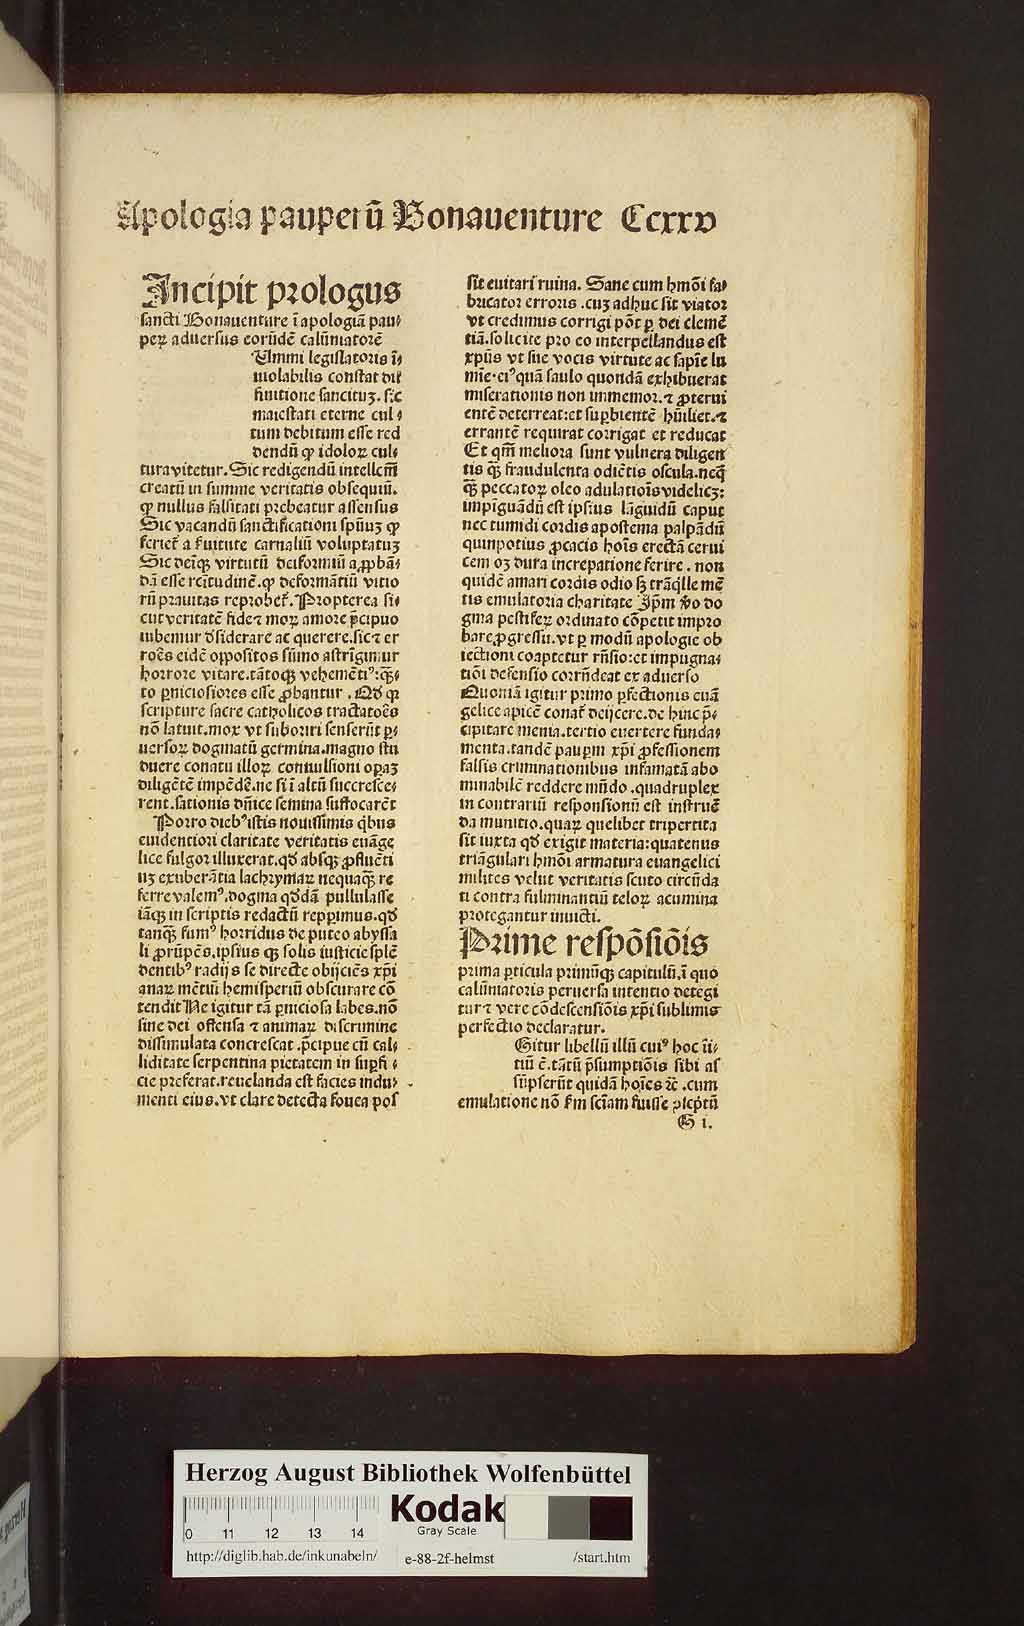 Apologia pauperū Bonauenture Ccxxv
Incipit prologus
sancti Bonauenture ī apologiā pau⸗
peꝝ aduersus eorūdē calūniatorē
Ummi legislatoris ī⸗
uiolabilis constat dif
finitione sancituʒ. sic
maiestati eterne cul⸗
tum debitum esse red
dendū ꝙ idoloꝝ cul⸗
tura vitetur. Sic redigendū intellcm̄
creatū in summe veritatis obsequiū.
ꝙ nullus falsitati prebeatur assensus
Sic vacandū sanctificationi spūuʒ ꝙ
feriet᷑ a fuitute carnaliū voluptatuʒ
Sic deīqꝫ virtutū deiformiū aꝓpbā⸗
dā esse rc̄itudinē. ꝙ deformātiū vitio
rū prauitas reprobet᷑. Propterea si⸗
cut veritatē fide ⁊ moꝝ amore p̄cipuo
iubemur d̓siderare ac querere. sic ⁊ er
roēs eidē oppositos sūmo astrīgimur
horrore vitare. tātoqꝫ vehemētiꝰ: qꝫ⸗
to ꝑniciosiores esse ꝓbantur. Qd̓ ꝙ
scripture sacre catholicos tractatoēs
nō latuit. mox vt suboriri senserūt ꝑ⸗
uersoꝝ dogmatū germina. magno stu
duere conatu illoꝝ conuulsioni opaʒ
diligētē impēdē. ne si ī altū succresce⸗
rent. sationis dn̄ice semina suffocarēt
Porro diebꝰ istis nouissimis qͥbus
euidentiori claritate veritatis euāge
lice fulgor illuxerat. qd̓ absqꝫ ꝓfluēti
uʒ exuberātia lachrymaꝝ nequaqꝫ re
ferre valemꝰ. dogma qd̓dā pullulasse
iāqꝫ in scriptis redactū repꝑimus. qd̓
tanqꝫ fumꝰ horridus de puteo abyssa
li ꝓrūpēs. ipsius qꝫ solis iusticie splē
dentibꝰ radijs se directe obijciēs xp̄i
anaꝝ mētiū hemisperiū obscurare cō
tendit Ne igitur tā ꝑniciosa labes. nō
sine dei offensa ⁊ animaꝝ discrimine
dissimulata concrescat. p̄cipue cū cal⸗
liditate serpentina pietatem in suꝑfi⸗
cie preferat. reuelanda est facies indu⸗
menti eius. vt clare detecta fouea pos
sit euitari ruina. Sane cum hmōi fa⸗
bricator erroris. cuʒ adhuc sit viator
vt credimus corrigi pōt ꝑ dei clemē
tiā. solicite pro eo interpellandus est
xp̄us vt sue vocis virtute ac sapīe lu
mīe. eiꝰ quā saulo quondā exhibuerat
miserationis non immemor. ⁊ ꝓterui
entē deterreat: et suꝑbientē hūiliet. ⁊
errantē requirat corrigat et reducat
Et qm̄ meliora sunt vulnera diligen
tis qꝫ fraudulenta odiētis oscula. neqꝫ
qꝫ peccatoꝝ oleo adulatiōis videlicʒ:
impīguādū est ipsius lāguidū caput
nec tumidi cordis apostema palpādū
quinpotius ꝓcacis hoīs erectā cerui
cem oʒ dura increpatione ferire. non
quidē amari cordis odio sʒ trāq̇lle mē
tis emulatoria charitate Ip̄m v̓o do
gma pestifeꝝ ordinato cōpetit impro
bare ꝓgressu. vt ꝑ modū apologie ob
iectioni coaptetur rn̄sio: et impugna⸗
tiōi defensio corrn̄deat ex aduerso
Quoniā igitur primo ꝑfectionis euā
gelice apicē conat᷑ deijcere. de hinc p̄⸗
cipitare menia. tertio euertere funda⸗
menta. tandē pauꝑm xp̄i ꝓfessionem
falsis criminationibus infamatā abo
minabilē reddere mūdo. quadruplex
in contrariū responsionū est instruē
da munitio. quaꝝ quelibet tripertita
sit iuxta qd̓ exigit materia: quatenus
triāgulari hmōi armatura euangelici
milites velut veritatis scuto circūda
ti contra fulminantiū teloꝝ acumina
protegantur inuicti.
Prime respōsiōis
prima ꝑticula primūqꝫ capitulū. ī quo
calūniatoris peruersa intentio detegi
tur ⁊ vere cōdescensiōis xp̄i sublimis
perfectio declaratur.
Gitur libellū illū cuiꝰ hoc īi⸗
tiū ē. tātū p̄sumptiōis sibi as
sūpserūt quidā hoīes ⁊c. cum
emulatione nō fm sciam fuisse ꝯscp̄tū
G i.
Herzog August Bibliothek Wolfenbüttel
Kodak
Gray Scale
0 11 12 13 14
http://diglib.hab.de/inkunabeln/ e-88-2f-helmst /start.htm